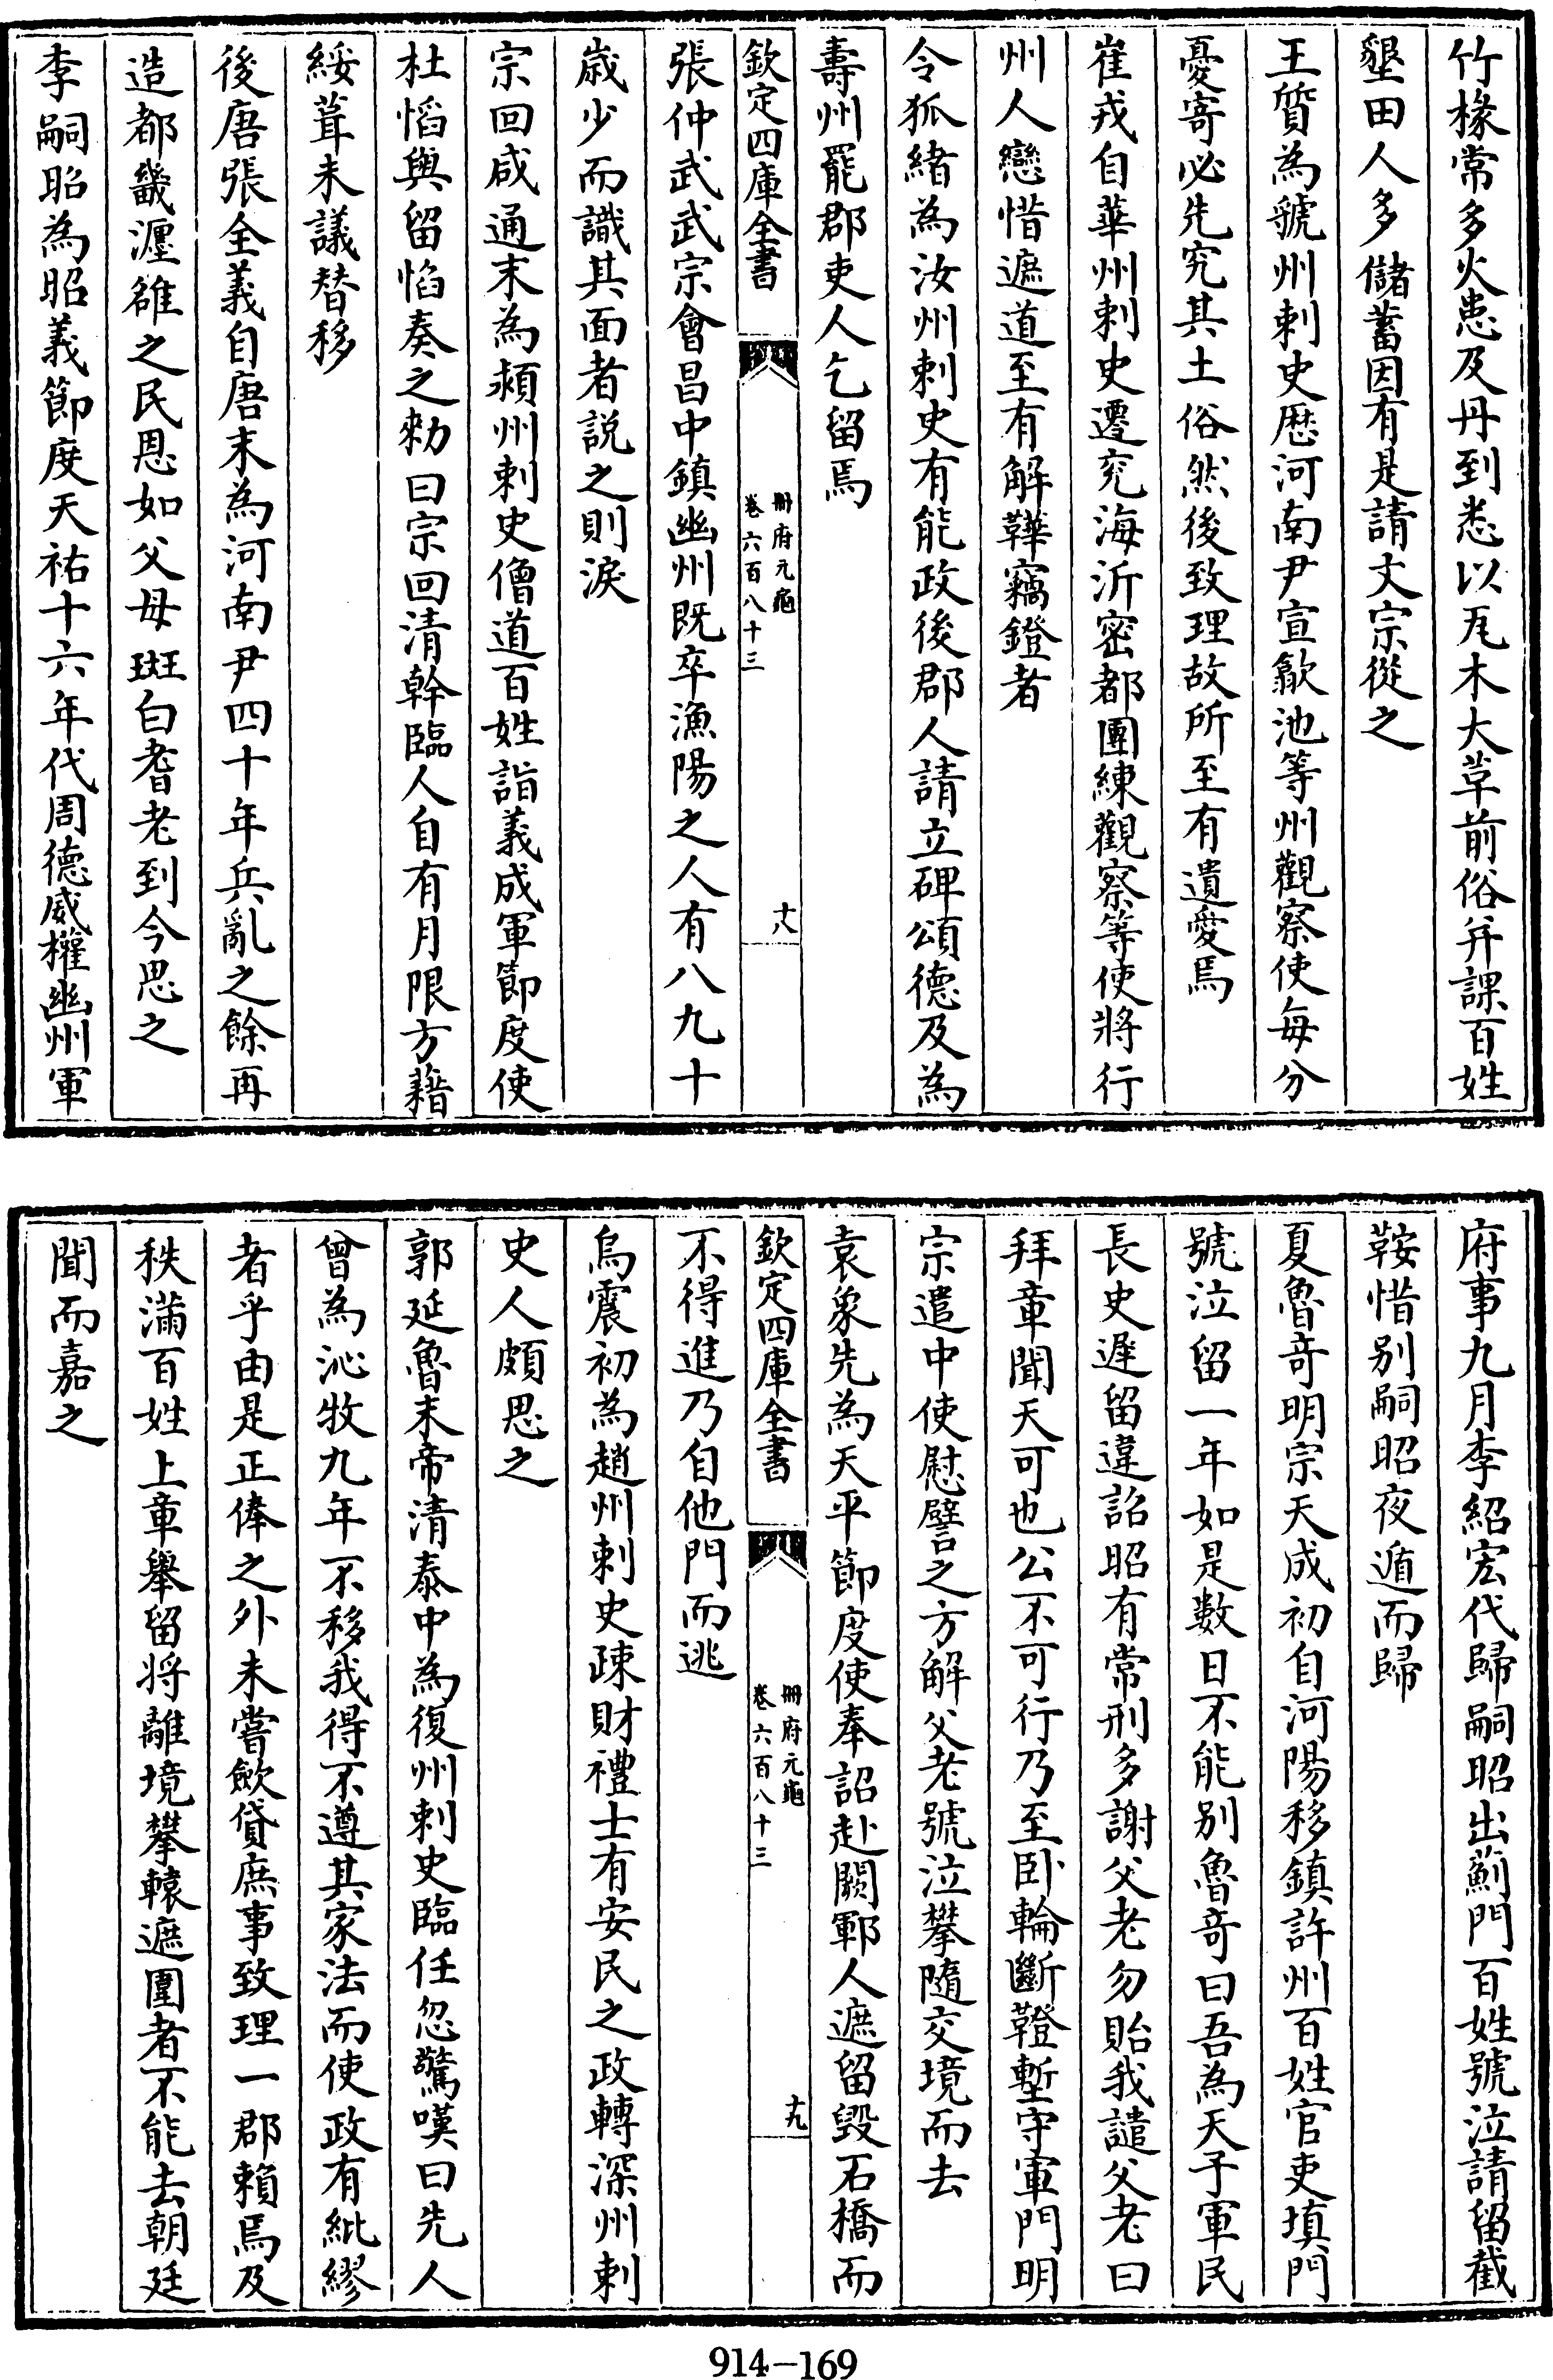 竹椽常多火患及丹到悉以瓦木大草前俗并課百姓
墾田人多儲蓄因有是請文宗從之
王質為虢州刺史歴河南尹宣歙池等州觀察使每分
憂寄必先究其土俗然後致理故所至有遺愛焉
崔戎自華州刺史遷兖海沂密都團練觀察等使將行
州人戀惜遮道至有解鞾竊鐙者
令狐緒為汝州刺史有能政後郡人請立碑頌德及為
壽州罷郡吏人乞留焉
欽定四庫全書
冊府元龜
卷六百八十三
十八
張仲武武宗會昌中鎮幽州既卒漁陽之人有八九十
歳少而識其面者説之則淚
宗回咸通末為潁州刺史僧道百姓詣義成軍節度使
杜慆與留慆奏之勑曰宗回清幹臨人自有月限方藉
綏葺未議替移
後唐張全義自唐末為河南尹四十年兵亂之餘再
造都畿瀍雒之民恩如父母斑白耆老到今思之
李嗣昭為昭義節度天祐十六年代周德威權幽州軍
府事九月李紹宏代歸嗣昭出薊門百姓號泣請留截
鞍惜别嗣昭夜遁而歸
夏魯竒明宗天成初自河陽移鎮許州百姓官吏填門
號泣留一年如是數日不能别魯竒曰吾為天子軍民
長史遲留違詔昭有常刑多謝父老勿貽我譴父老曰
拜章聞天可也公不可行乃至卧輪斷鞾塹守軍門明
宗遣中使慰譬之方解父老號泣攀隨交境而去
袁象先為天平節度使奉詔赴闕鄆人遮留毀石橋而
欽定四庫全書
冊府元龜
卷六百八十三
十九
不得進乃自他門而逃
烏震初為趙州刺史疎財禮士有安民之政轉深州刺
史人頗思之
郭延魯末帝清泰中為復州刺史臨任忽驚嘆曰先人
曾為沁牧九年不移我得不遵其家法而使政有紕繆
者乎由是正俸之外未嘗歛貸庶事致理一郡賴焉及
秩滿百姓上章舉留将離境攀轅遮圍者不能去朝廷
聞而嘉之
914-169